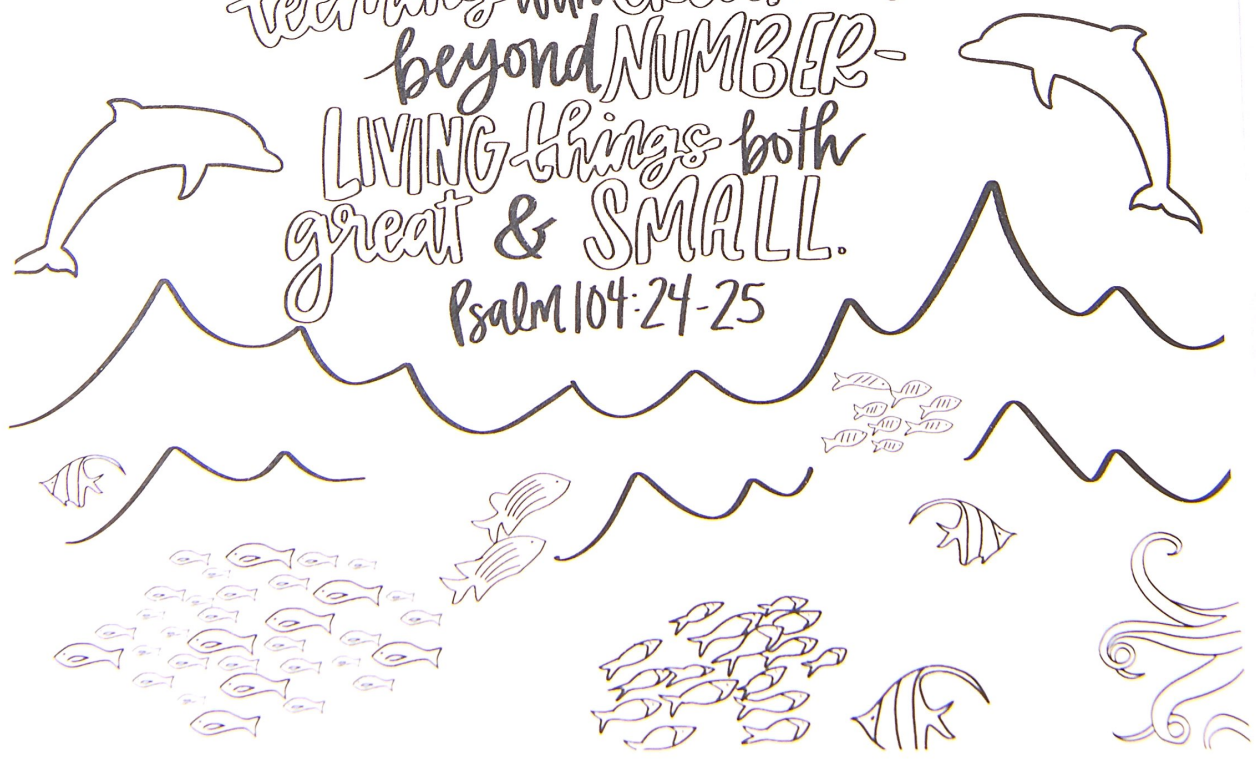 teeming with
beyond NUMBER-
LIVING things both
great & SMALL.
Psalm 104:24-25